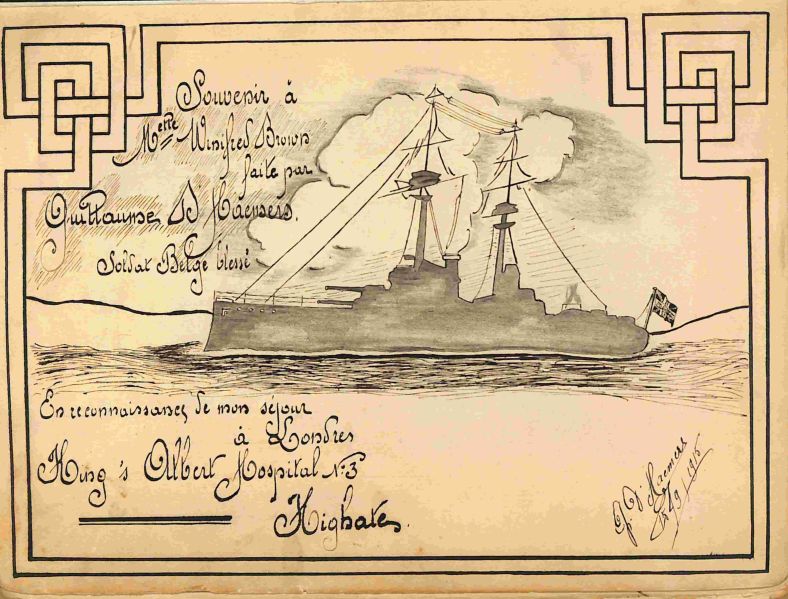 Souvenir à
Melle Winifred Brown
faite par
Guillaume D'Haemers.
Soldat Belge blessé
En reconnaissance de mon séjour
à Londres
King's Albert Hospital N:3
Highate.
G. D'Haemers
9/1915